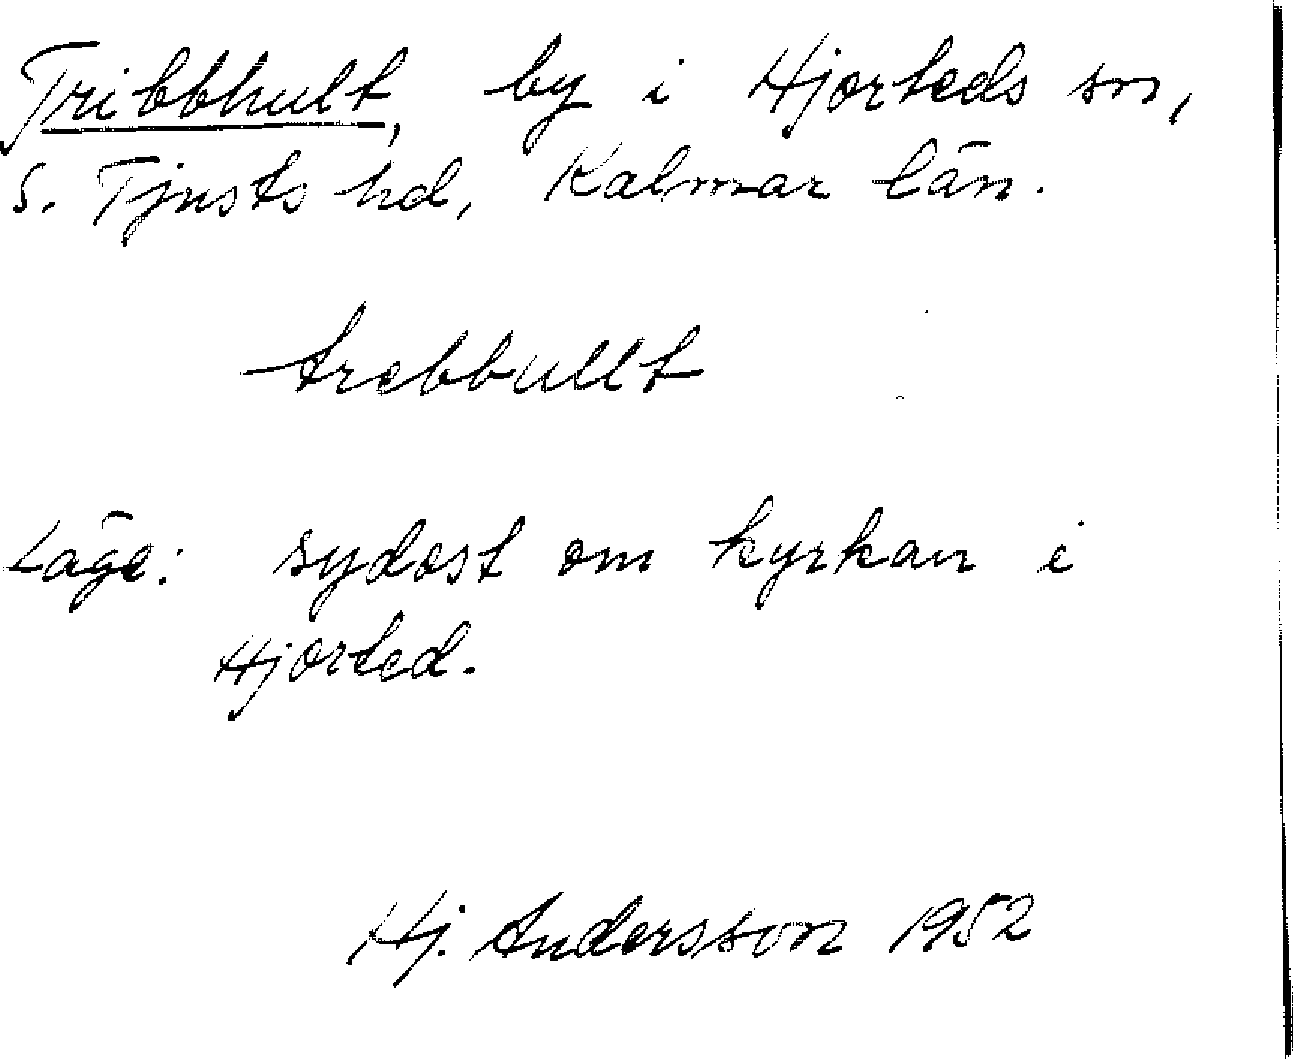 Tribbhult, by i Hjorteds sn,
S. Tjusts hd, Kalmar län.
trebbullt
Läge: sydost om kyrkan i
Hjorted.
Hj. Andersson 1952